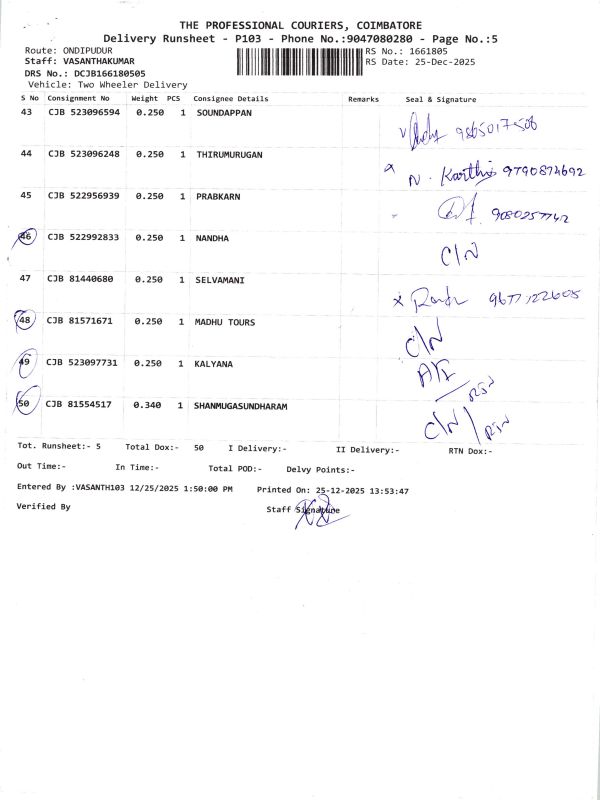 THE PROFESSIONAL COURIERS, COIMBATORE
Delivery Runsheet - P103 - Phone No.:9047080280 - Page No.:5
Route: ONDIPUDUR RS No.: 1661805
Staff: VASANTHAKUMAR RS Date: 25-Dec-2025
DRS No.: DCJB166180505
Vehicle: Two Wheeler Delivery
S No Consignment No Weight PCS Consignee Details Remarks Seal & Signature
43 CJB 523096594 0.250 1 SOUNDAPPAN 9865017508
44 CJB 523096248 0.250 1 THIRUMURUGAN N. Karthi 9790874692
45 CJB 522956939 0.250 1 PRABKARN
46 CJB 522992833 0.250 1 NANDHA C/N
47 CJB 81440680 0.250 1 SELVAMANI 9677122605
48 CJB 81571671 0.250 1 MADHU TOURS C/N
49 CJB 523097731 0.250 1 KALYANA RTN
50 CJB 81554517 0.340 1 SHANMUGASUNDHARAM C/N / RTN
Tot. Runsheet:- 5 Total Dox:- 50 I Delivery:- II Delivery:- RTN Dox:-
Out Time:- In Time:- Total POD:- Delvy Points:-
Entered By :VASANTH103 12/25/2025 1:50:00 PM Printed On: 25-12-2025 13:53:47
Verified By Staff Signature